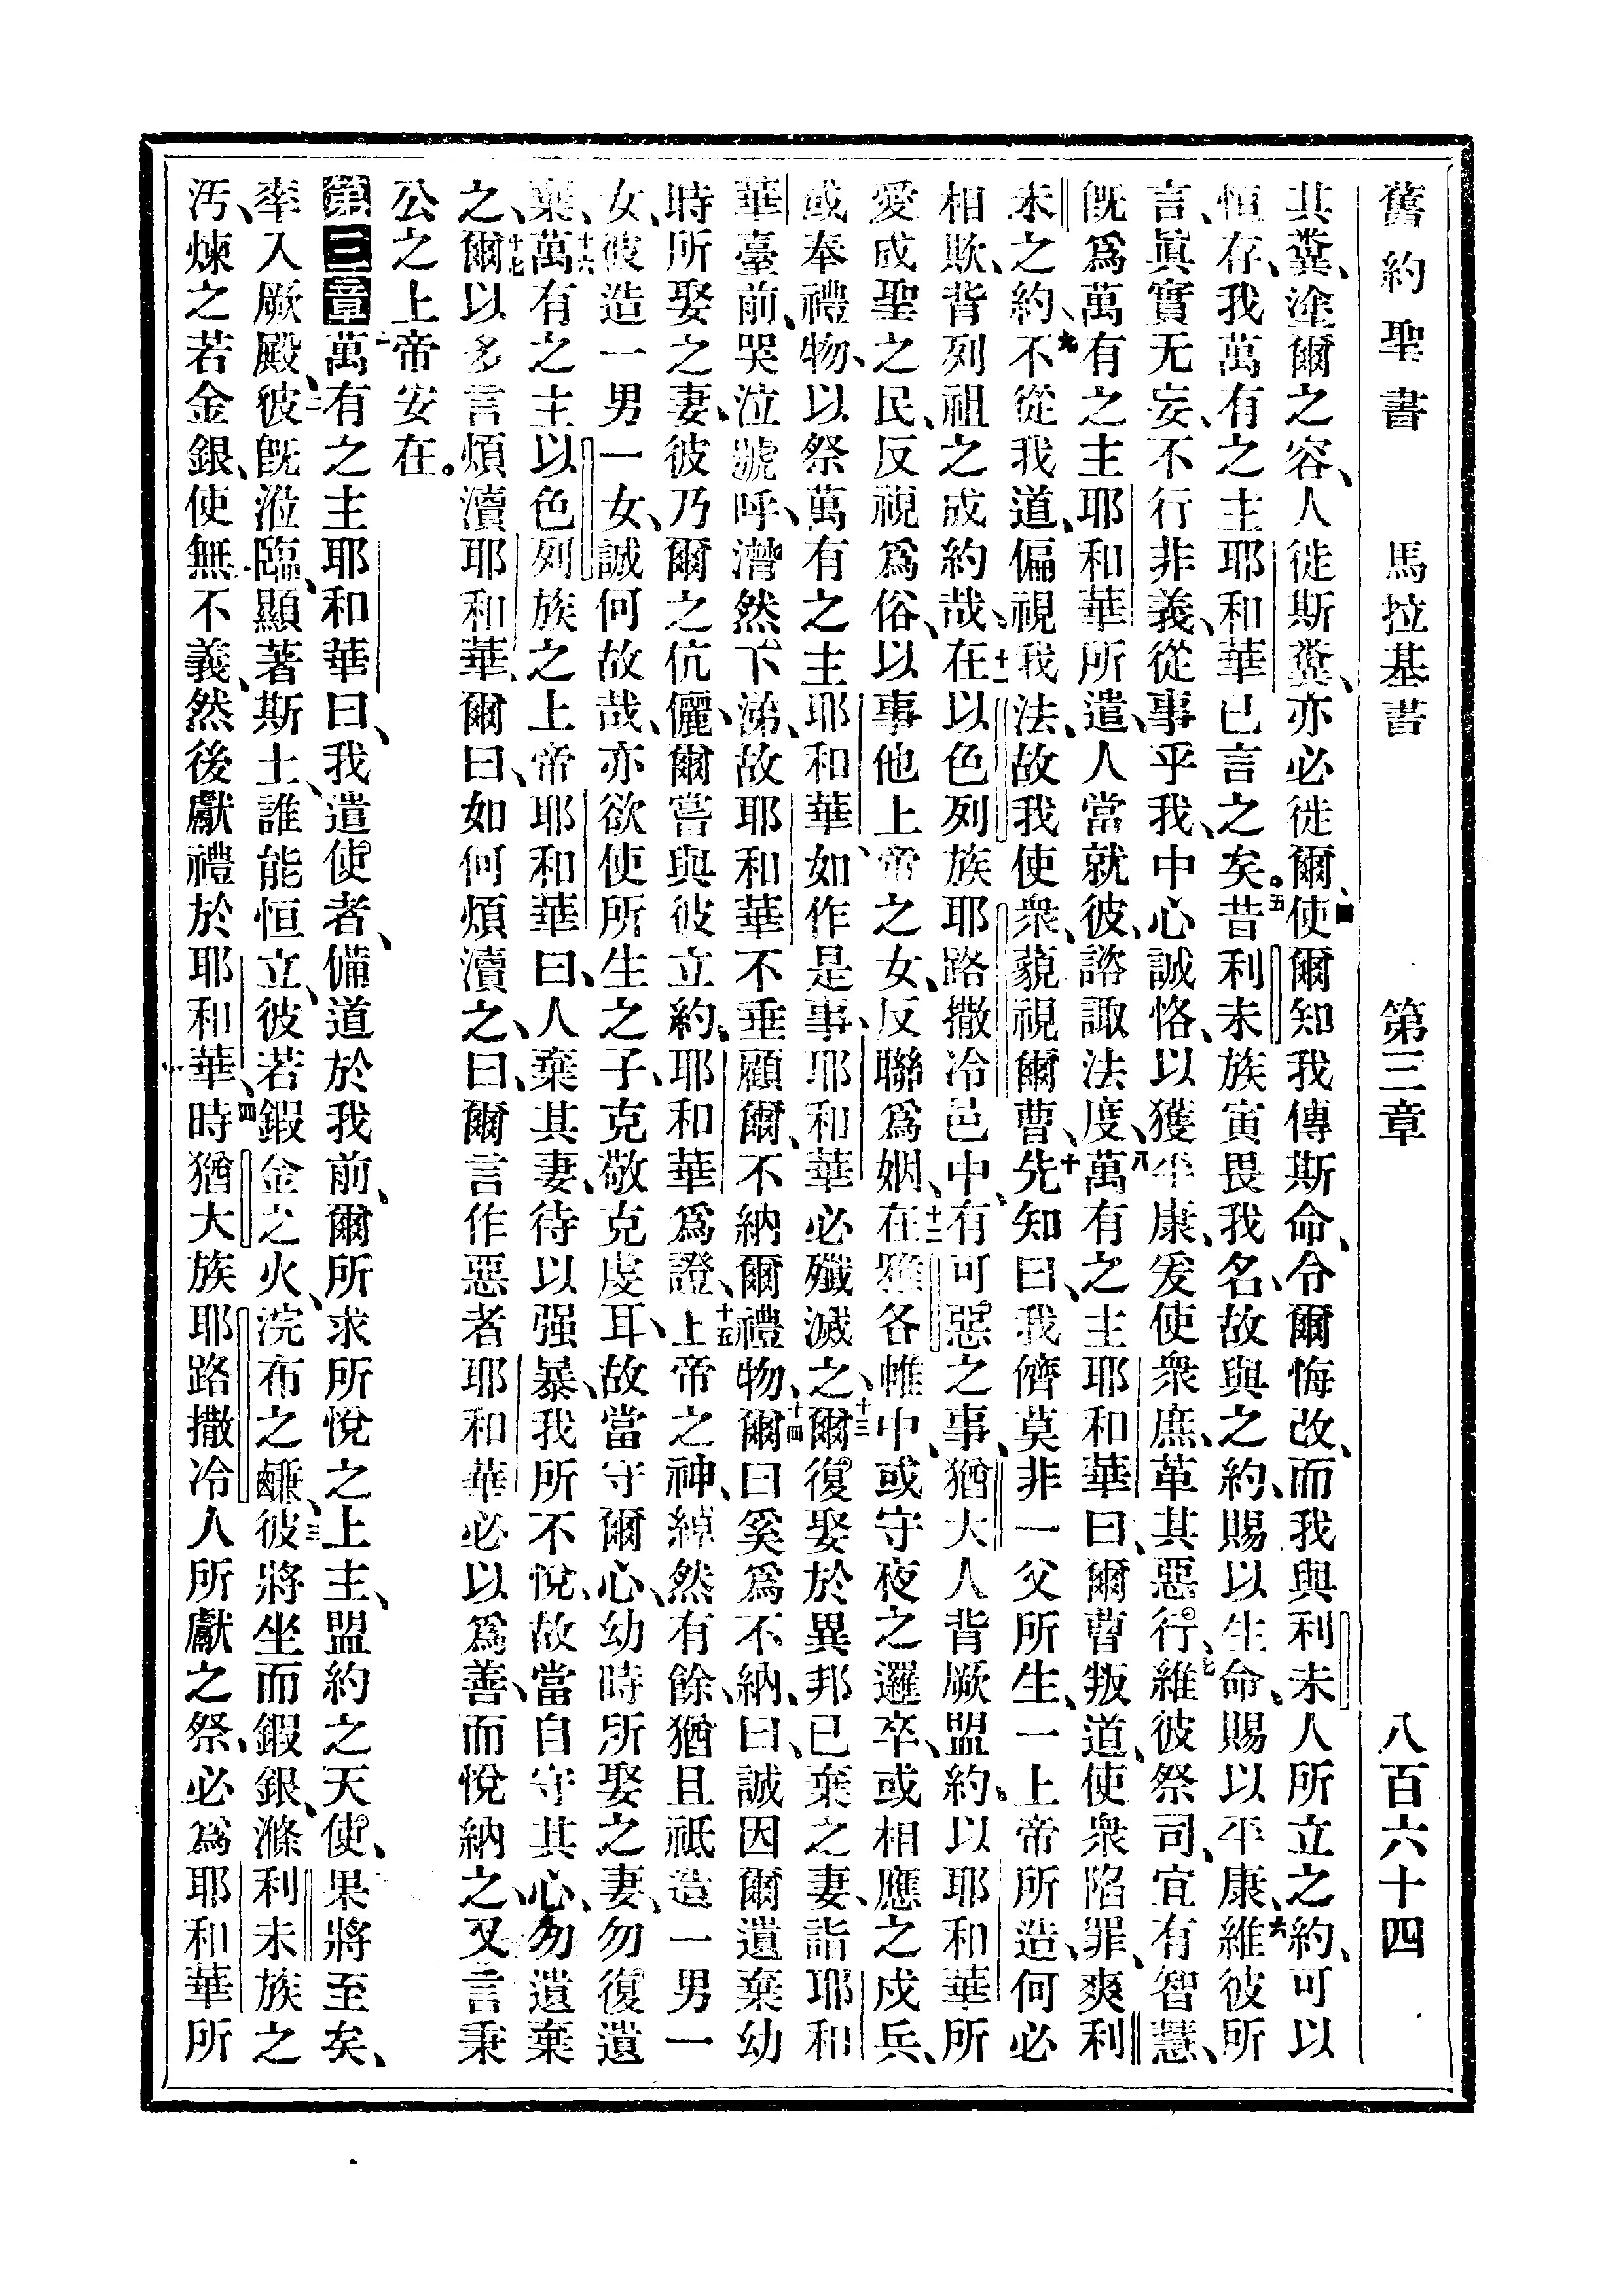 舊約聖書 馬拉基書 第三章 八百六十四
其糞、塗爾之容、人徙斯糞、亦必徙爾、四使爾知我傳斯命、令爾悔改、而我與利未人所立之約、可以
恒存、我萬有之主耶和華已言之矣。五昔利未族寅畏我名、故與之約、賜以生命、賜以平康、六維彼所
言、眞實无妄、不行非義、從事乎我、中心誠恪、以獲平康、爰使衆庶、革其惡行、七維彼祭司、宜有智慧、
旣爲萬有之主耶和華所遣、人當就彼、諮諏法度、八萬有之主耶和華曰、爾曹叛道、使衆陷罪、爽利
未之約、九不從我道、偏視我法、故我使衆、藐視爾曹、十先知曰、我儕莫非一父所生、一上帝所造、何必
相欺、背列祖之成約哉、十一在以色列族耶路撒冷邑中、有可惡之事、猶大人背厥盟約、以耶和華所
愛成聖之民、反視爲俗、以事他上帝之女、反聯爲姻、十二在雅各帷中、或守夜之邏卒、或相應之戍兵、
或奉禮物、以祭萬有之主耶和華、如作是事、耶和華必殲滅之、十三爾復娶於異邦、已棄之妻、詣耶和
華臺前、哭泣號呼、潸然下涕、故耶和華不垂顧爾、不納爾禮物、十四爾曰奚爲不納、曰、誠因爾遺棄幼
時所娶之妻、彼乃爾之伉儷、爾嘗與彼立約、耶和華爲證、十五上帝之神、綽然有餘、猶且祇造一男一
女、彼造一男一女、誠何故哉、亦欲使所生之子、克敬克虔耳、故當守爾心、幼時所娶之妻、勿復遺
棄、十六萬有之主以色列族之上帝耶和華曰、人棄其妻、待以强暴、我所不悅、故當自守其心、勿遺棄
之、十七爾以多言煩瀆耶和華、爾曰、如何煩瀆之、曰、爾言作惡者耶和華必以爲善、而悅納之、又言秉
公之上帝安在。
第三章一萬有之主耶和華曰、我遣使者、備道於我前、爾所求所悅之上主、盟約之天使、果將至矣、
率入厥殿、二彼旣涖臨、顯著斯土、誰能恒立、彼若鍜金之火、浣布之鹻、三彼將坐而鍜銀、滌利未族之
汚、煉之若金銀、使無不義、然後獻禮於耶和華、四時猶大族耶路撒冷人所獻之祭、必爲耶和華所